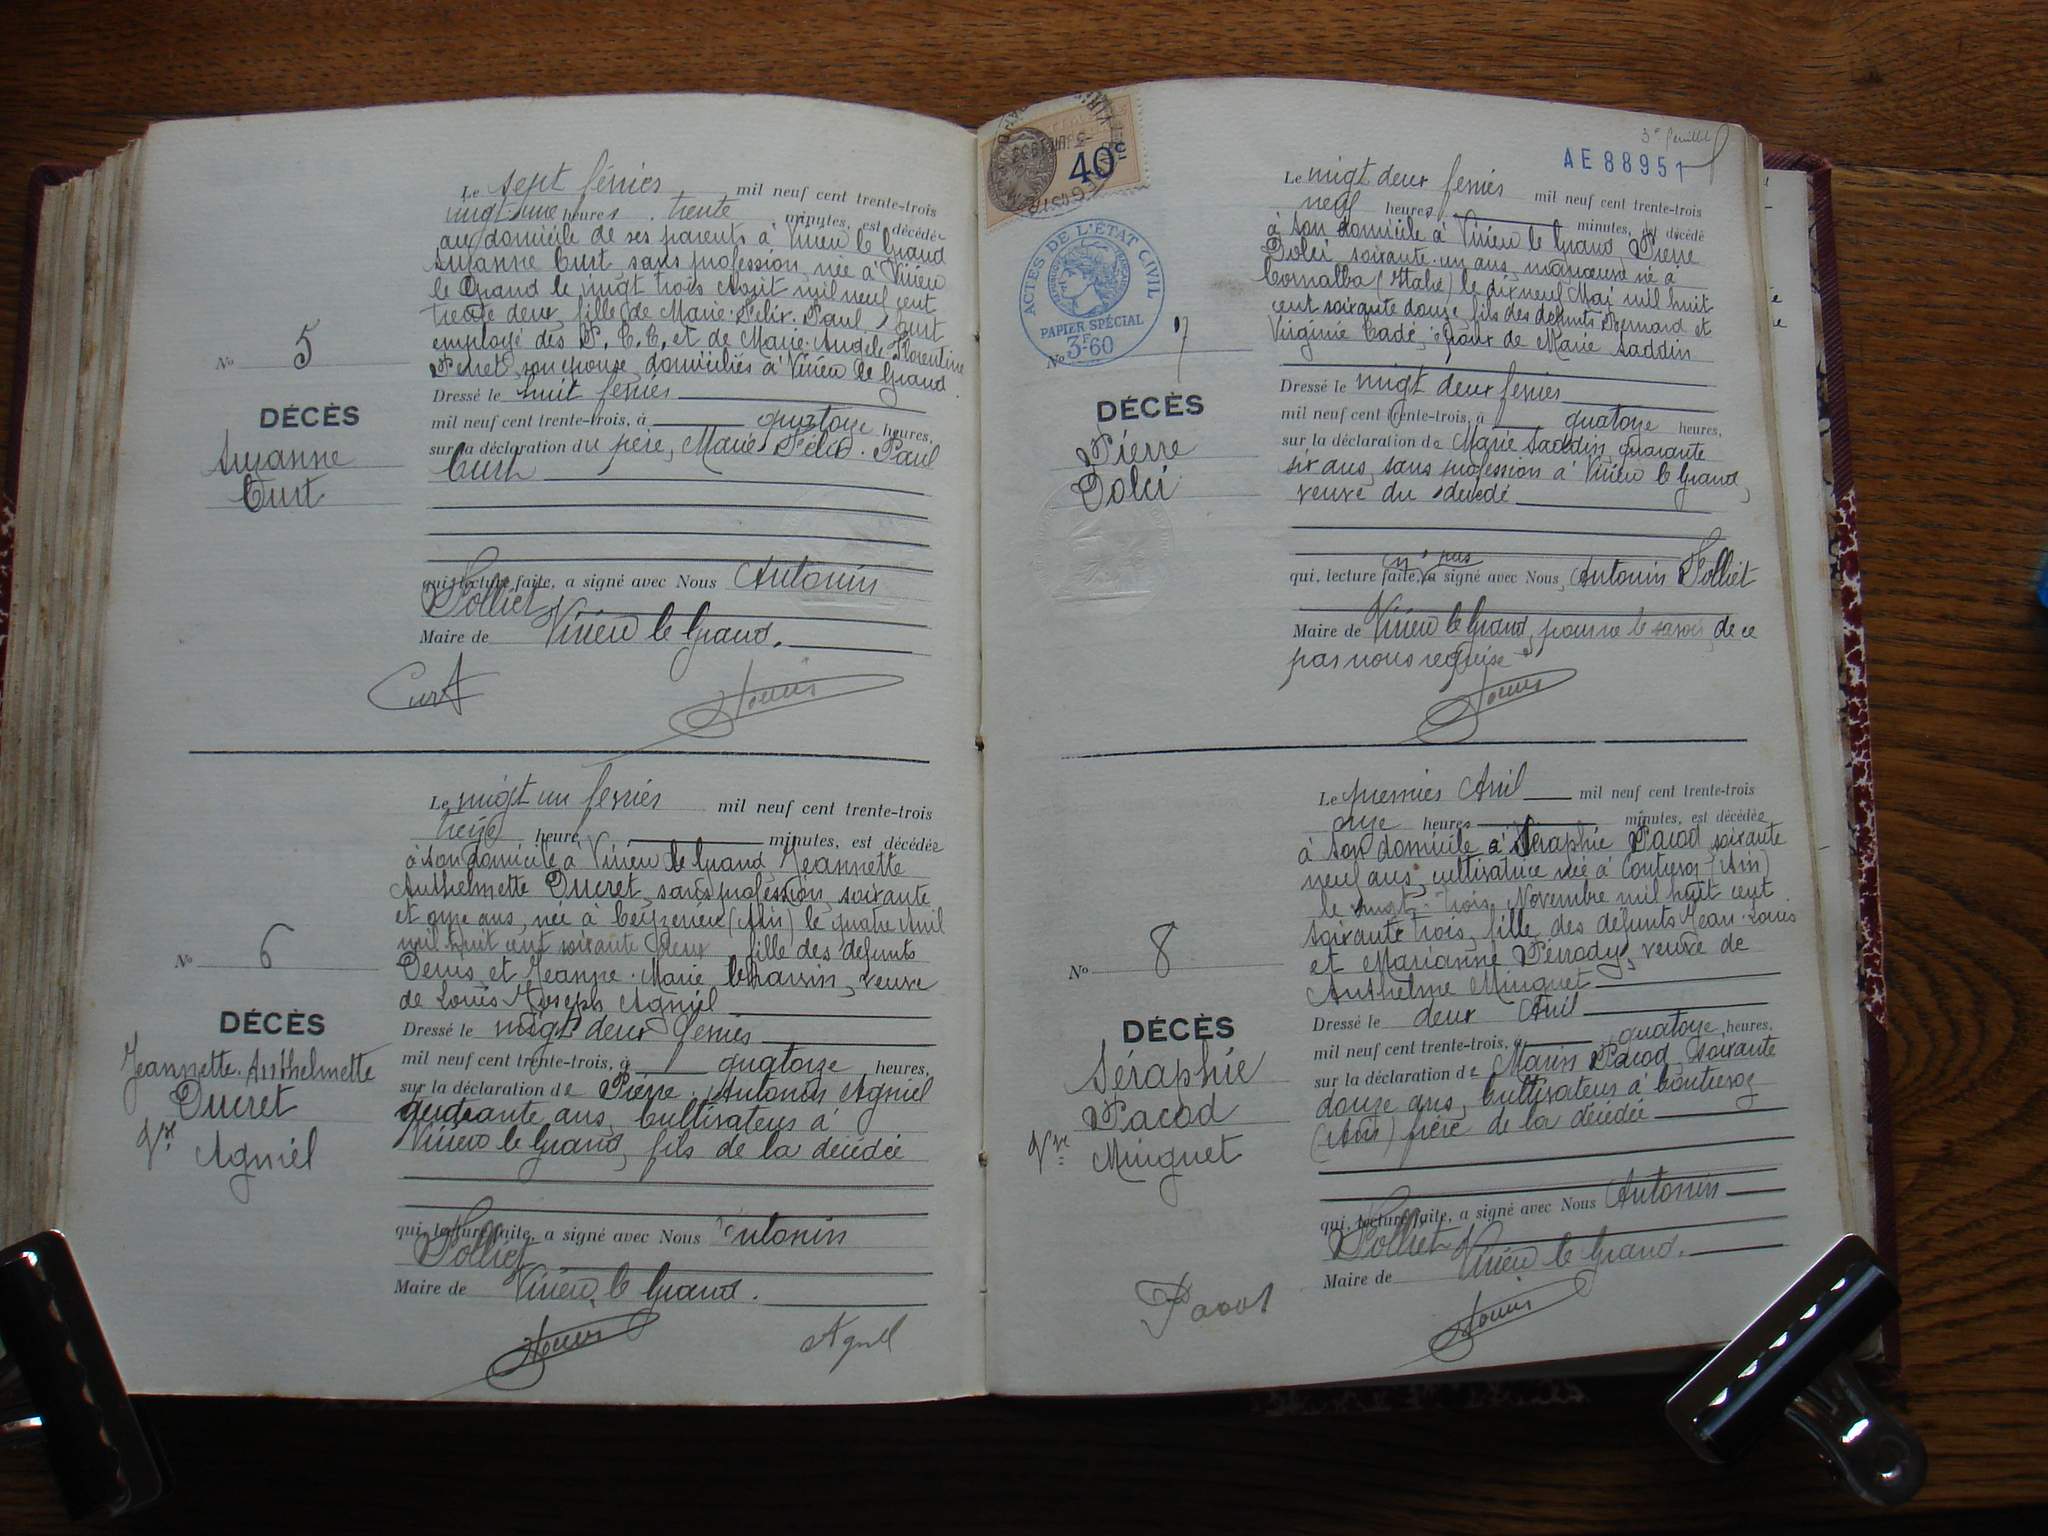 Le sept février mil neuf cent trente-trois
vingt une heures trente minutes, est décédée
au domicile de ses parents à Virieu le Grand
Suzanne Curt sans profession, née à Virieu
le Grand le vingt trois Août mil neuf cent
trente deux, fille de Marie Félix Paul Curt
employé des P. T. T. et de Marie Angèle Florentine
son épouse, domiciliés à Virieu le Grand.
No 5
Dressé le huit février
DÉCÈS
mil neuf cent trente-trois, à quatorze heures,
Suzanne
Curt
sur la déclaration du père, Marie Félix Paul
Curt
qui, lecture faite, a signé avec Nous Antonin
Polliet
Maire de Virieu le Grand.
Curt
Le vingt un février mil neuf cent trente-trois
treize heure minutes, est décédée
à son domicile à Virieu le Grand, Jeannette
Anthelmette Ducret, sans profession, soixante
et onze ans, née à Ceyzérieu (Ain) le quatre Avril
mil huit cent soixante deux fille des défunts
Denis et Jeanne Marie veuve
de Louis Joseph Agniel
No 6
Dressé le vingt deux février
DÉCÈS
mil neuf cent trente-trois, à quatorze heures,
Jeannette Anthelmette
Ducret
Vve Agniel
sur la déclaration de Pierre Antonin Agniel
quarante ans, Cultivateur à
Virieu le Grand, fils de la décédée
qui, lecture faite, a signé avec Nous Antonin
Polliet
Maire de Virieu le Grand.
Agniel
3e feuillet
AE 88951
40c
ACTES DE L'ÉTAT CIVIL
PAPIER SPÉCIAL
3F60
Le vingt deux février mil neuf cent trente-trois
neuf heures minutes, est décédé
à son domicile à Virieu le Grand, Pierre
Dolci, soixante un ans, manœuvre né à
Cornalba (Italie) le dix neuf Mai mil huit
cent soixante douze, fils des défunts Bernard et
Virginie Cadé, époux de Marie Saddin
No 7
Dressé le vingt deux février
DÉCÈS
mil neuf cent trente-trois, à quatorze heures,
Pierre
Dolci
sur la déclaration de Marie Saddin, quarante
six ans, sans profession à Virieu le Grand,
veuve du décédé
qui, lecture faite, n'a pas signé avec Nous, Antonin Polliet
Maire de Virieu le Grand, pour ne le savoir, de ce
par nous requise
Le premier Avril mil neuf cent trente-trois
onze heures minutes, est décédée
à son domicile Séraphie Pacod soixante
neuf ans, cultivatrice née à Contrevoz (Ain)
le vingt trois Novembre mil huit cent
soixante trois, fille des défunts Jean Louis
et Marianne Pérrody, veuve de
Anthelme Minguet
No 8
Dressé le deux Avril
DÉCÈS
mil neuf cent trente-trois, à quatorze heures,
Séraphie
Pacod
Vve Minguet
sur la déclaration de Marin Pacod, soixante
douze ans, Cultivateur à Contrevoz
(Ain) frère de la décédée
qui, lecture faite, a signé avec Nous Antonin
Polliet
Maire de Virieu le Grand.
Pacod